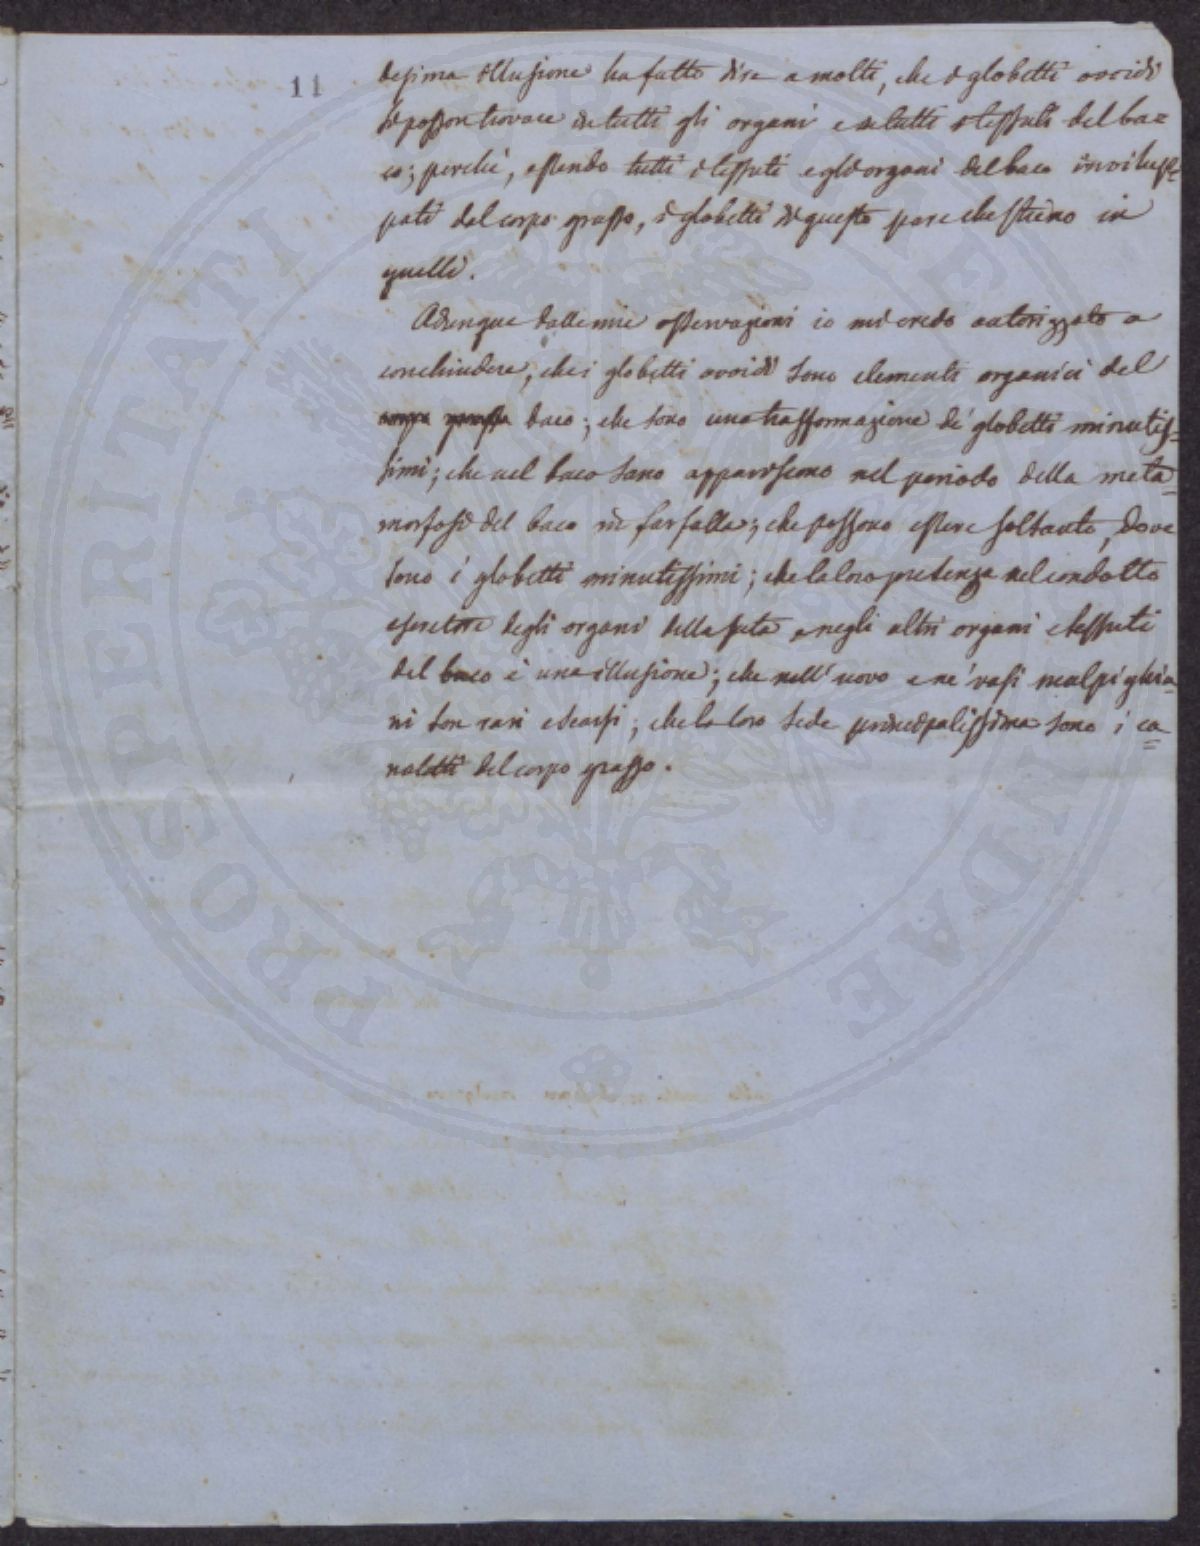 11
desima illusione ha fatto dire a molti, che i globetti ovoidi
si posson trovare in tutti gli organi e in tutti i tessuti del ba=
co; perchè, essendo tutti i tessuti e gli organi del baco invilup=
pati dal corpo grasso, i globetti di questo pare che stieno in
quelli.
Adunque dalle mie osservazioni io mi credo autorizzato a
conchiudere, che i globetti ovoidi sono elementi organici del
corpo grasso baco; che sono una trasformazione de' globetti minutis=
simi; che nel baco sano appariscono nel periodo della meta=
morfosi del baco in farfalla; che possono essere soltanto, dove
sono i globetti minutissimi; che la loro presenza nel condotto
escretore degli organi della seta e negli altri organi e tessuti
del baco è una illusione; che nell'uovo e ne' vasi malpighia=
ni son rari e scarsi; che la loro sede principalissima sono i ca=
naletti del corpo grasso.
PROSPERITATI PUBLICAE AUGENDAE